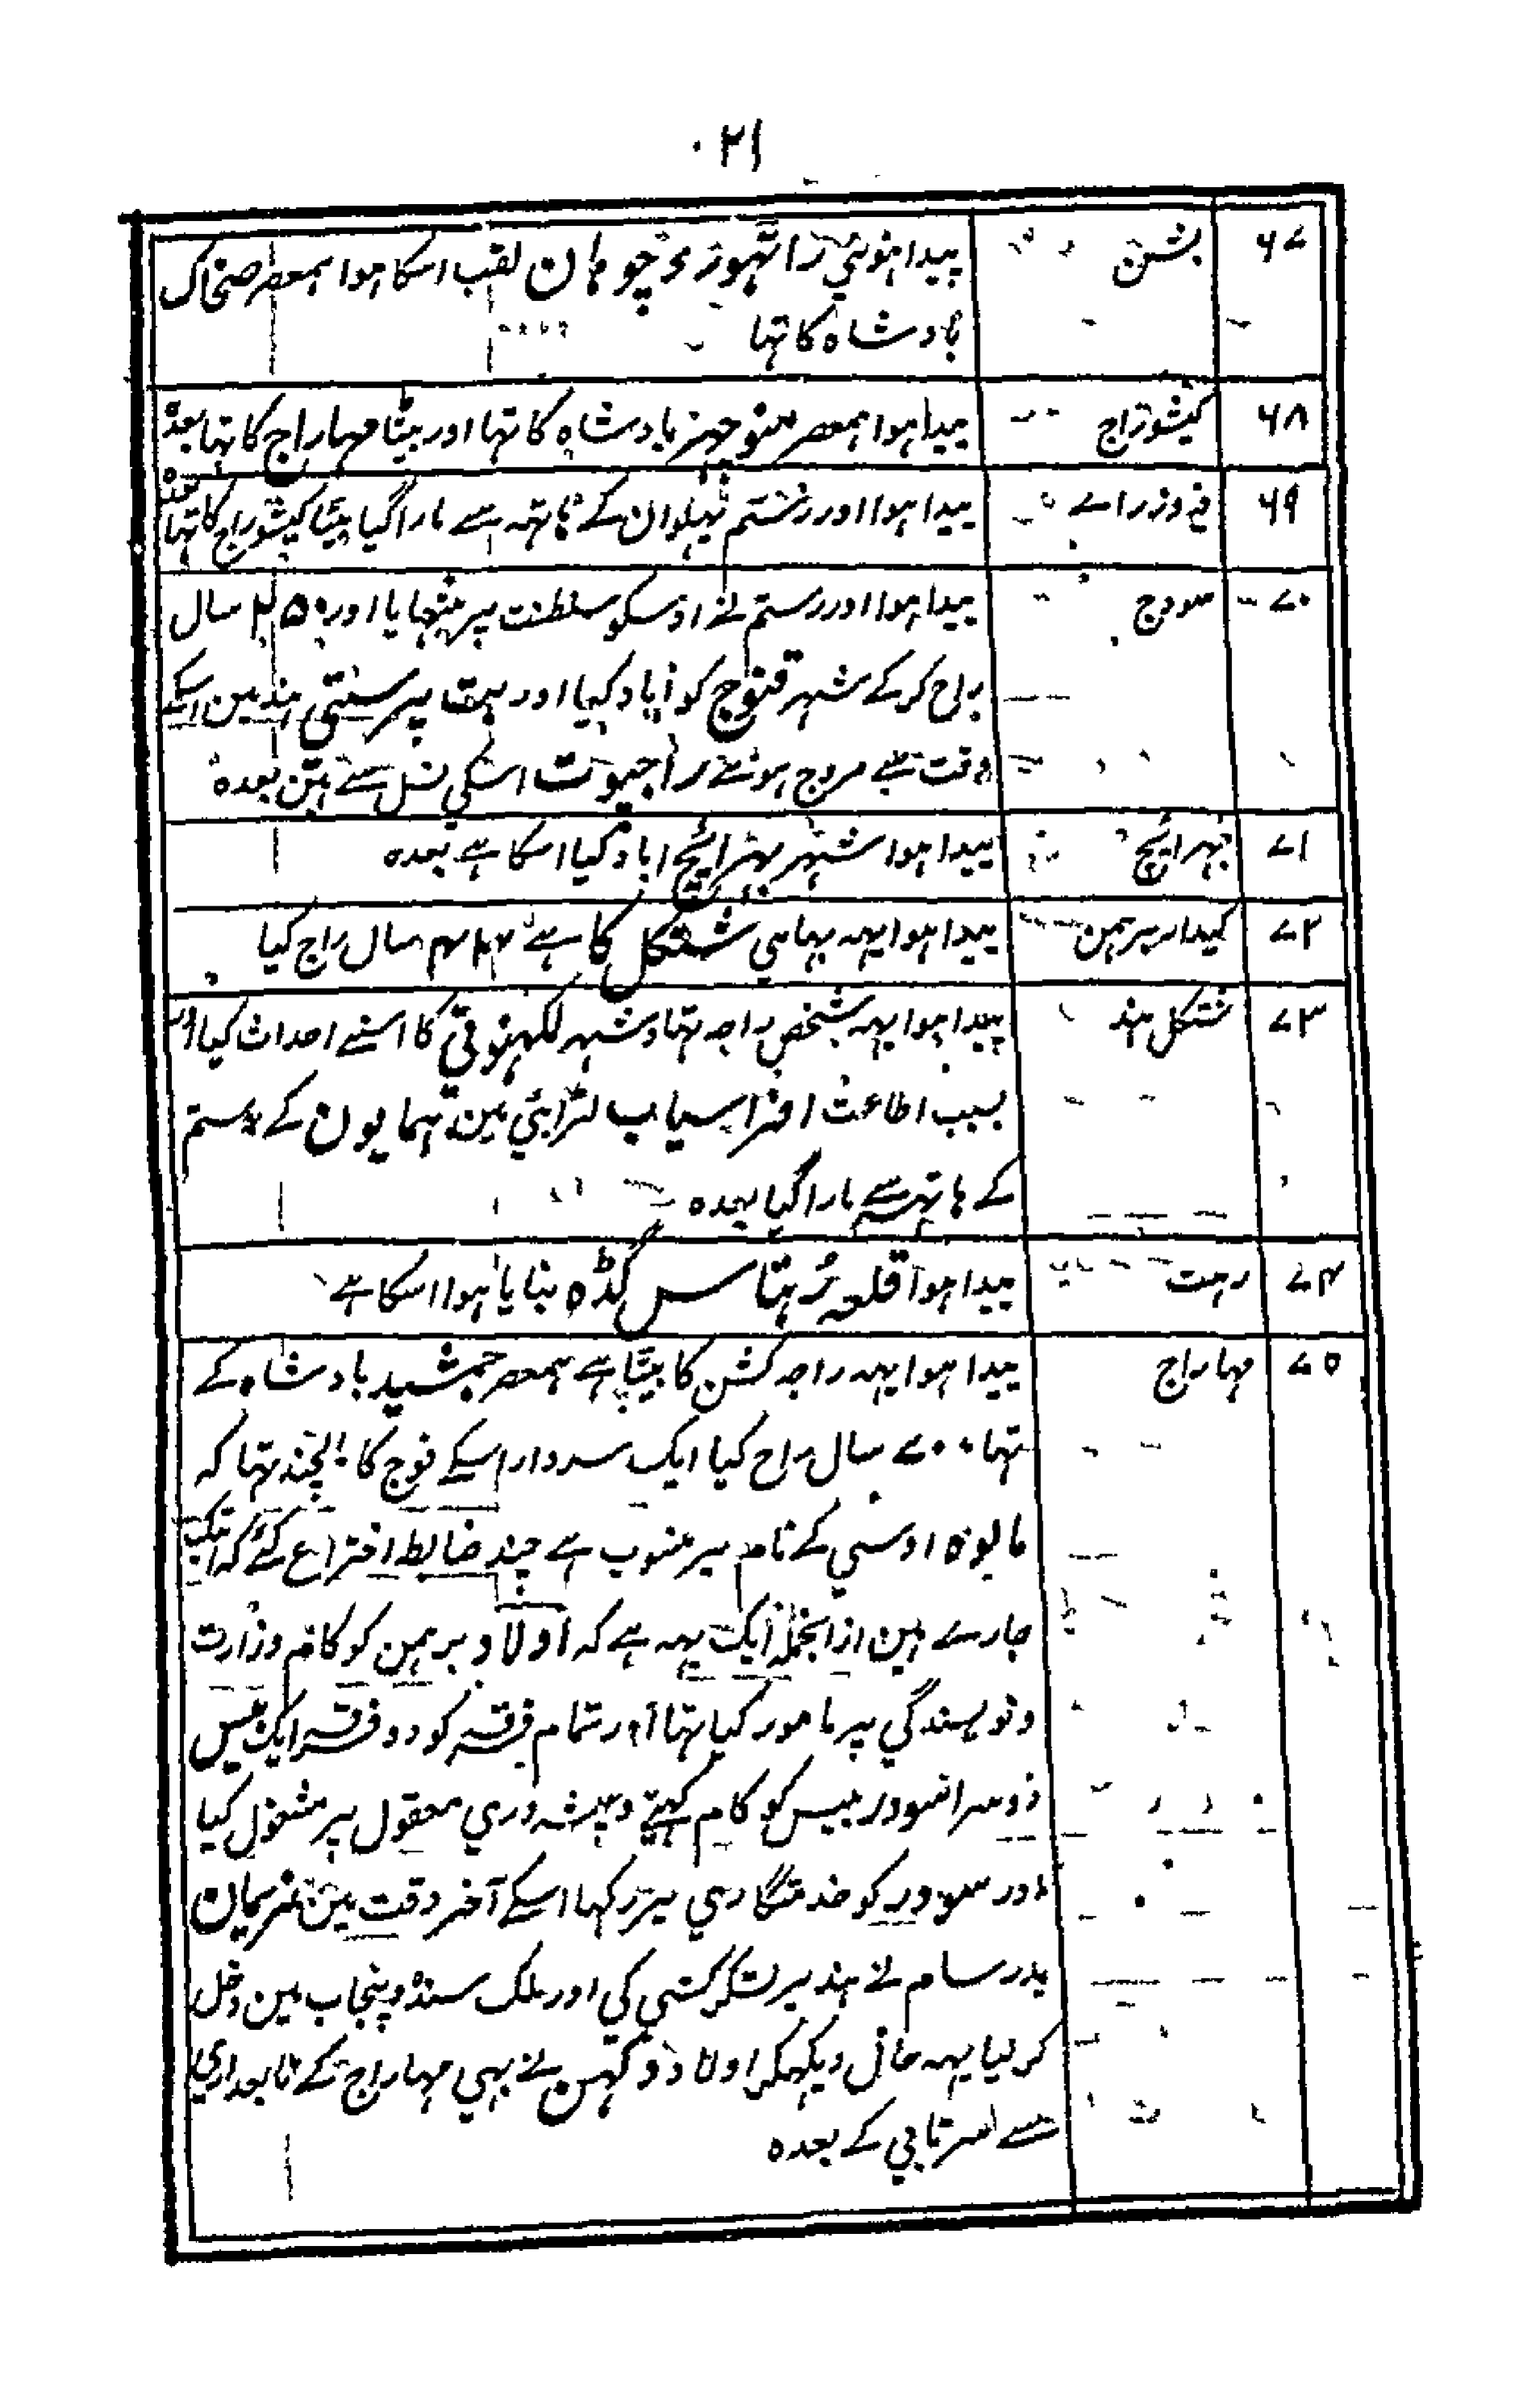 ۲۱
۶۷ بشن پیدا ہوئی راٹھور و چوہان لقب اسکا ہوا ہمعصر ضحاک
بادشاہ کا تہا
۶۸ کیشوراج پیدا ہوا ہمعصر منوچہر بادشاہ کا تہا اور بیٹا مہاراج کا تہا بعدہ
۶۹ فیروزراے پیدا ہوا اور رستم پہلوان کے ہاتہہ سے مارا گیا بیٹا کیشوراج کا تہا بعدہ
۷۰ سورج پیدا ہوا اور رستم نے اوسکو سلطنت پر بٹھایا اور ۲۵۰ سال
راج کر کے شہر قنوج کو آباد کیا اور بت پرستی ہند مین اسکے
وقت سے مروج ہوئے راجپوت اسکی نسل سے ہین بعدہ
۷۱ بہرائچ پیدا ہوا شہر بہرائچ اباد کیا اسکا ہے بعدہ
۷۲ کیدار برہمن پیدا ہوا یہہ بہای شنکل کا ہے سال راج کیا
۷۳ شنکل ہند پیدا ہوا یہہ شخص راجہ تہا و شہر لکہنوتی کا اسنے احداث کیا اور
بسبب اطاعت افراسیاب لڑائی مین ہمایون کے رستم
کے ہاتہہ سے مارا گیا بعدہ
۷۴ رہت پیدا ہوا قلعہ رہتاس گڈہ بنایا ہوا اسکا ہے
۷۵ مہاراج پیدا ہوا یہہ راجہ کشن کا بیٹا ہے ہمعصر جمشید بادشاہ کے
تہا ۷۰۰ سال راج کیا ایک سردار اسکے فوج کا بالچند تہا کہ
مالوہ اوسی کے نام پر منسوب ہے چند ضابطہ اختراع کئے کہ ابتک
جارے ہین ازانجملہ ایک یہہ ہے کہ اولاد برہمن کو کام وزارت
و نویسندگی پر مامور کیا تہا اور تمام فرقہ کو دو فرقہ ایک بیس
دوسرا سودر بیس کو کام کہیتی و پیشہ وری معقول پر مشغول کیا
اور سودر کو خدمتگاری پر رکہا اسکے آخر وقت مین نریمان
پدر سام نے ہند پر لشکر کشی کی اور ملک سندہ و پنجاب مین دخل
کر لیا یہہ حال دیکہکر اولاد دکہن نے بہی مہاراج کے تابعداری
سے سرتابی کے بعدہ